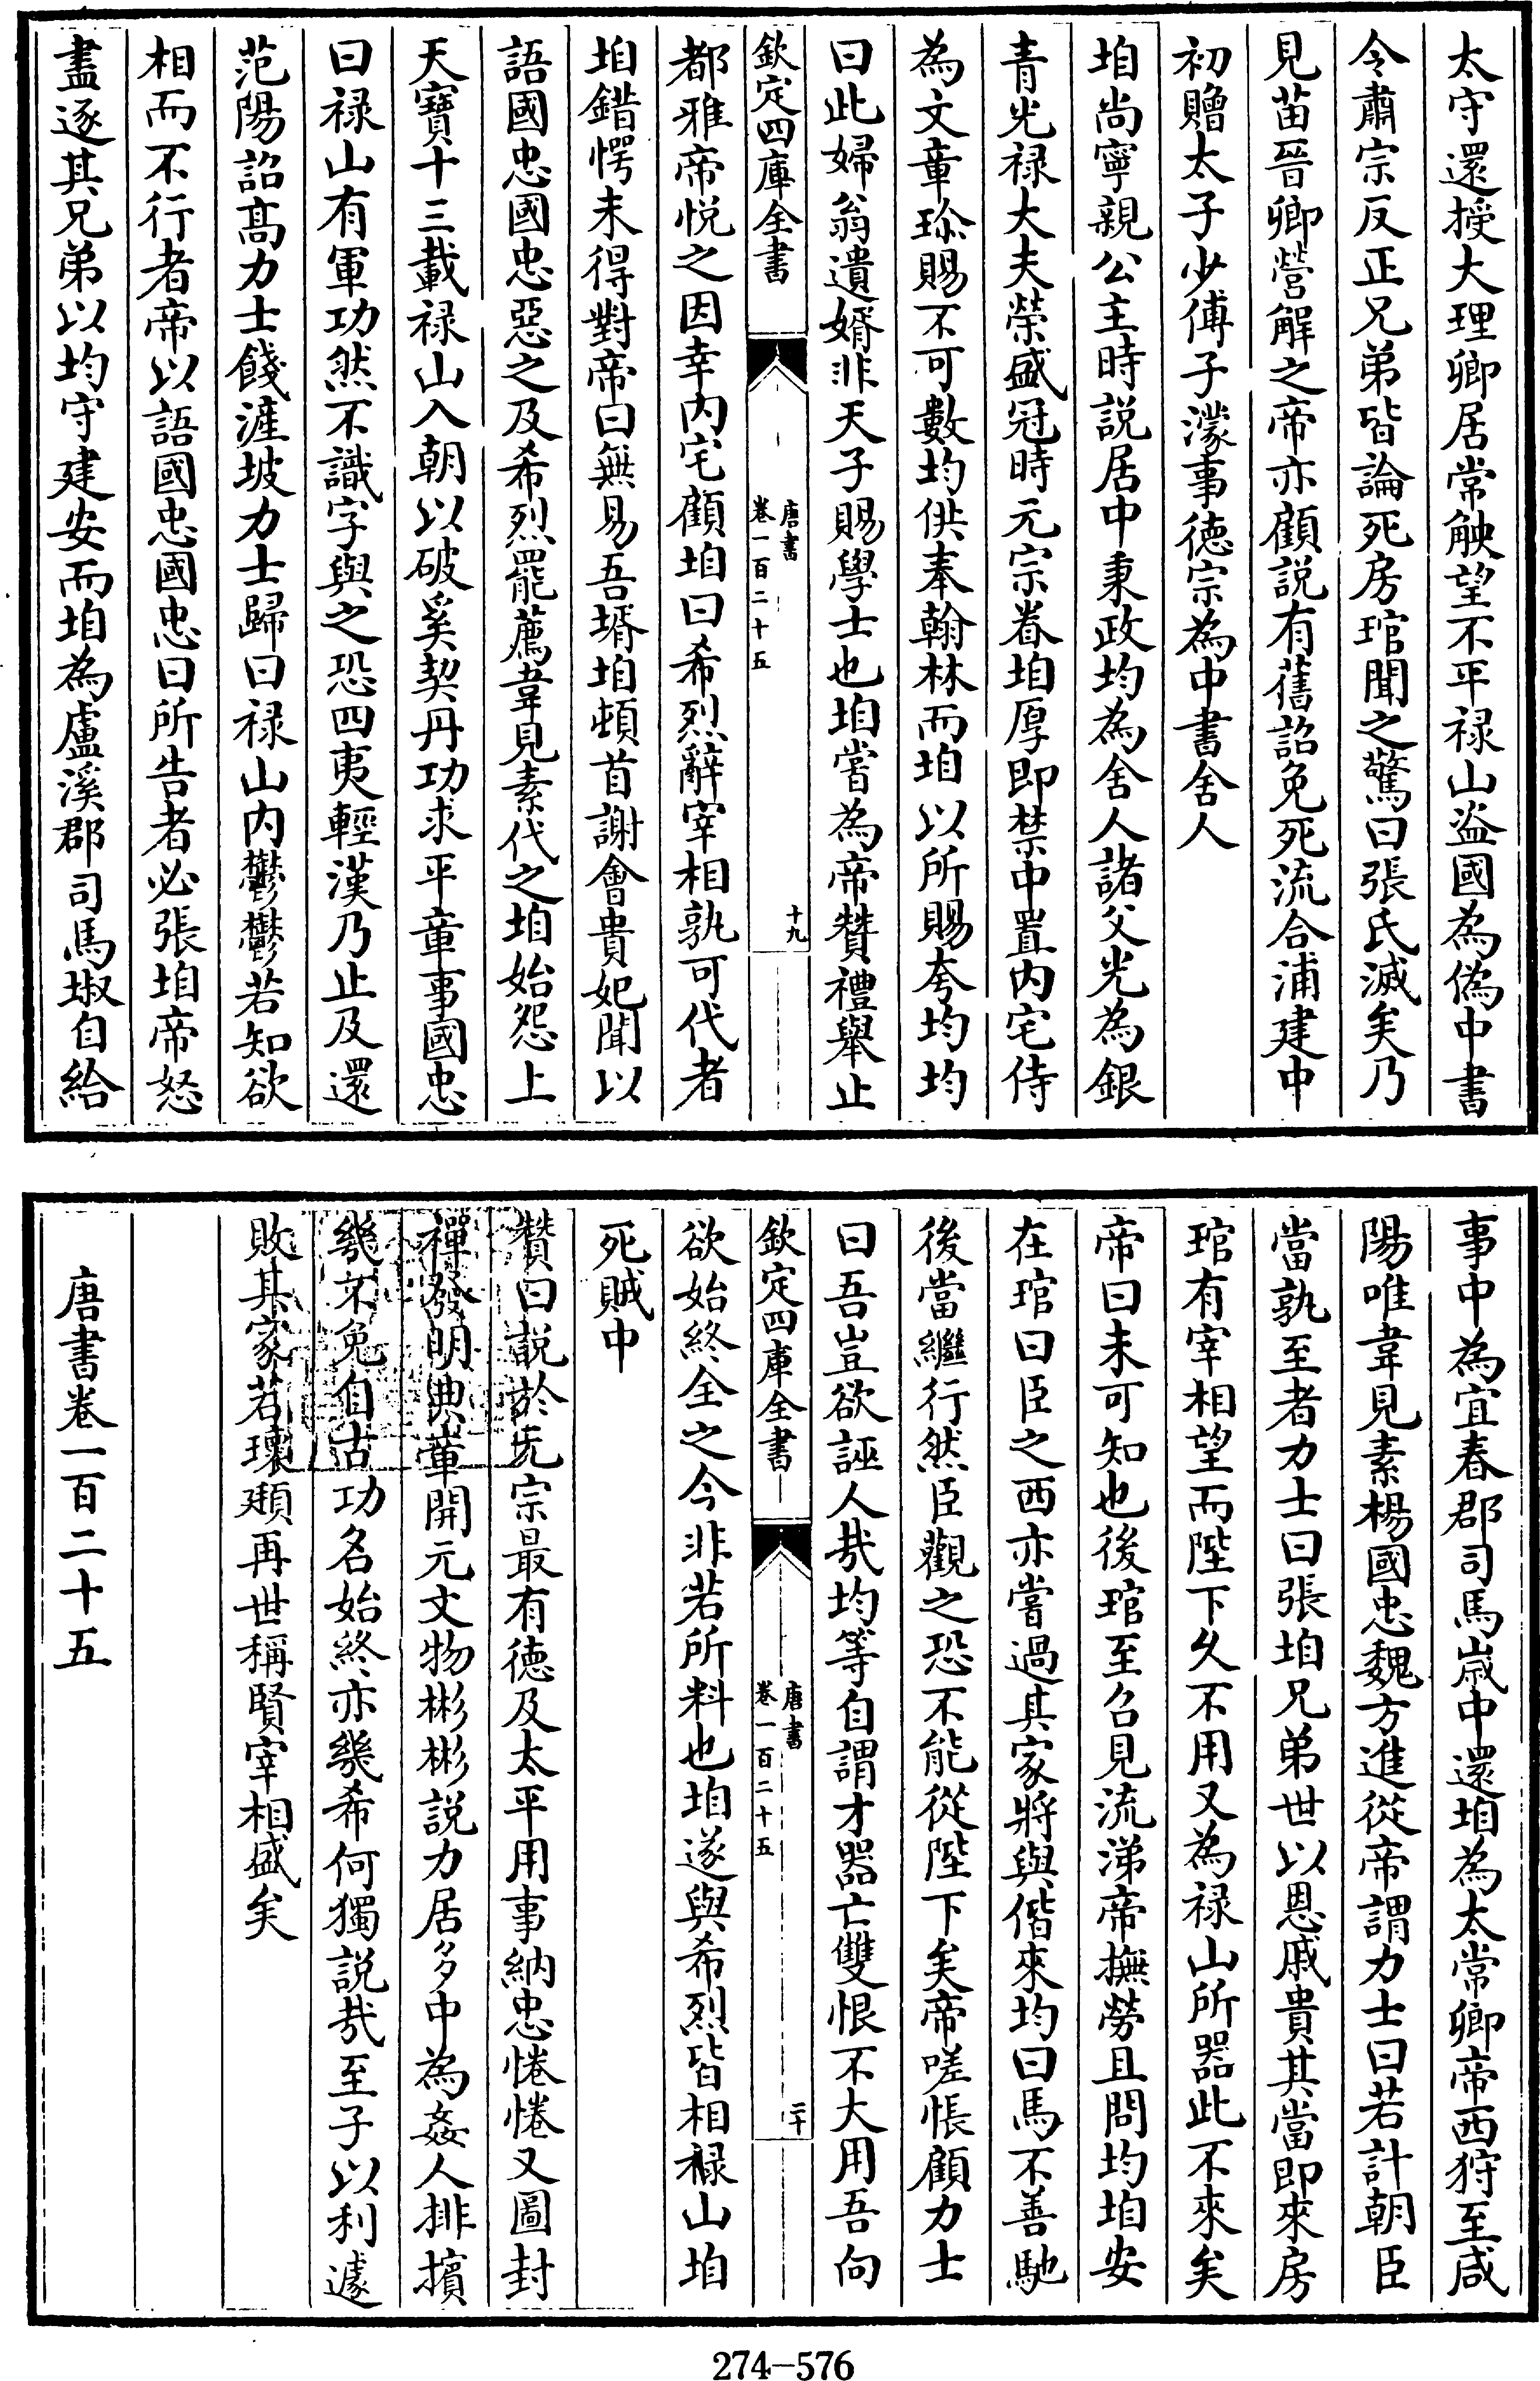 太守還授大理卿居常觖望不平禄山盗國為偽中書
令肅宗反正兄弟皆論死房琯聞之驚曰張氏滅矣乃
見苗晉卿營解之帝亦顧説有舊詔免死流合浦建中
初贈太子少傅子濛事德宗為中書舍人
垍尚寧親公主時説居中秉政均為舍人諸父光為銀
青光禄大夫榮盛冠時元宗眷垍厚即禁中置内宅侍
為文章珍賜不可數均供奉翰林而垍以所賜夸均均
曰此婦翁遺婿非天子賜學士也垍嘗為帝贊禮舉止
欽定四庫全書
唐書
卷一百二十五
十九
都雅帝悦之因幸内宅顧垍曰希烈辭宰相孰可代者
垍錯愕未得對帝曰無易吾壻垍頓首謝會貴妃聞以
語國忠國忠惡之及希烈罷薦韋見素代之垍始怨上
天寶十三載禄山入朝以破奚契丹功求平章事國忠
曰禄山有軍功然不識字與之恐四夷輕漢乃止及還
范陽詔髙力士餞滻坡力士歸曰禄山内鬱鬱若知欲
相而不行者帝以語國忠國忠曰所告者必張垍帝怒
盡逐其兄弟以均守建安而垍為盧溪郡司馬埱自給
事中為宜春郡司馬嵗中還垍為太常卿帝西狩至咸
陽唯韋見素楊國忠魏方進從帝謂力士曰若計朝臣
當孰至者力士曰張垍兄弟世以恩戚貴其當即來房
琯有宰相望而陛下久不用又為禄山所器此不來矣
帝曰未可知也後琯至召見流涕帝撫勞且問均垍安
在琯曰臣之西亦嘗過其家將與偕來均曰馬不善馳
後當繼行然臣觀之恐不能從陛下矣帝嗟悵顧力士
曰吾豈欲誣人哉均等自謂才器亡雙恨不大用吾向
欽定四庫全書
唐書
卷一百二十五
二十
欲始終全之今非若所料也垍遂與希烈皆相禄山垍
死賊中
贊曰説於元宗最有德及太平用事納忠惓惓又圖封
禪發明典章開元文物彬彬説力居多中為姦人排擯
幾不免自古功名始終亦幾希何獨説哉至子以利遽
敗其家若瓌頲再世稱賢宰相盛矣
唐書卷一百二十五
274-576